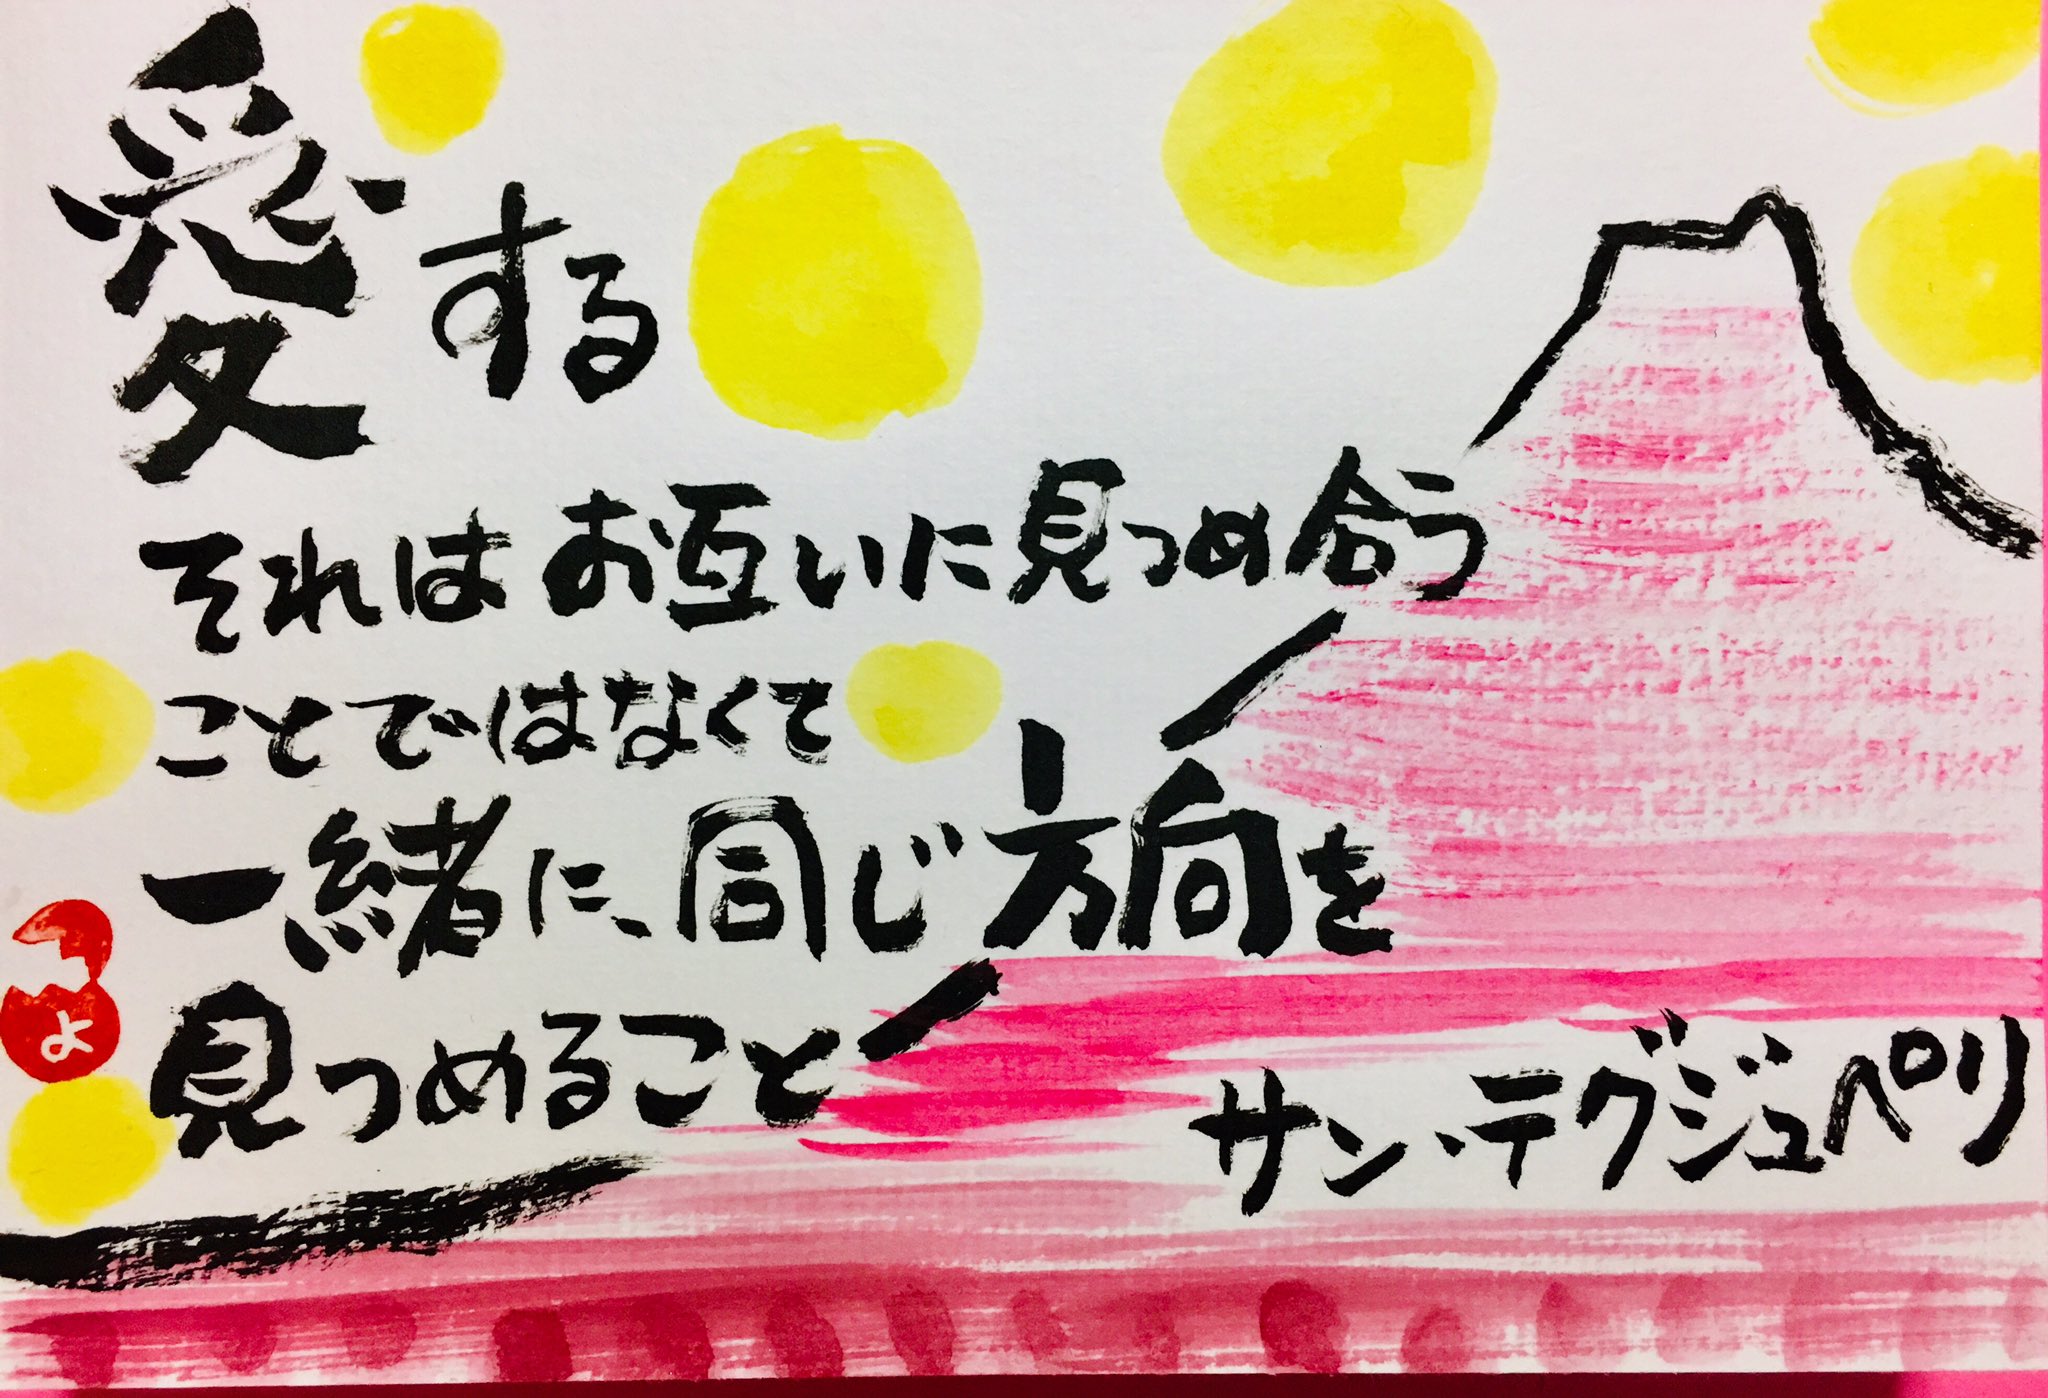 愛する
それはお互いに見つめ合う
ことではなくて
一緒に、同じ方向を
見つめること
サン・テグジュペリ
よ